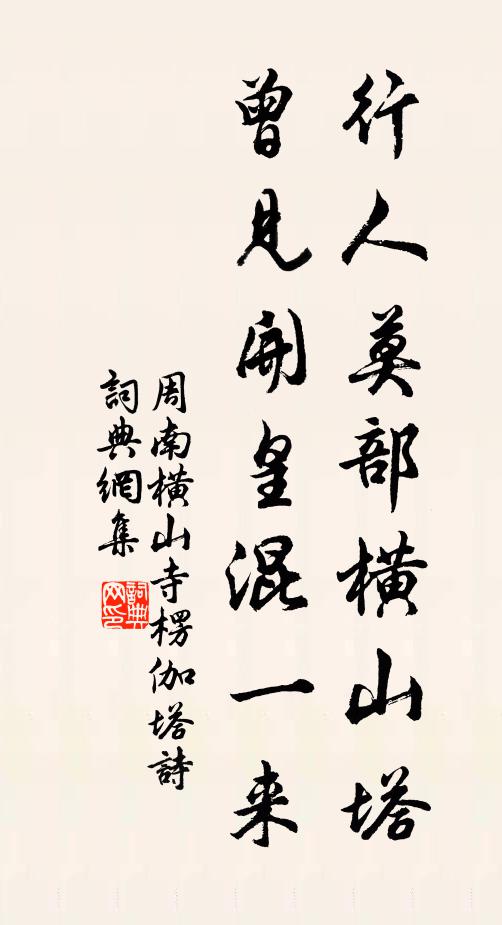 行人莫部横山塔
曾見開皇混一来
周南橫山寺楞伽塔詩
詞典網集
詞典网印